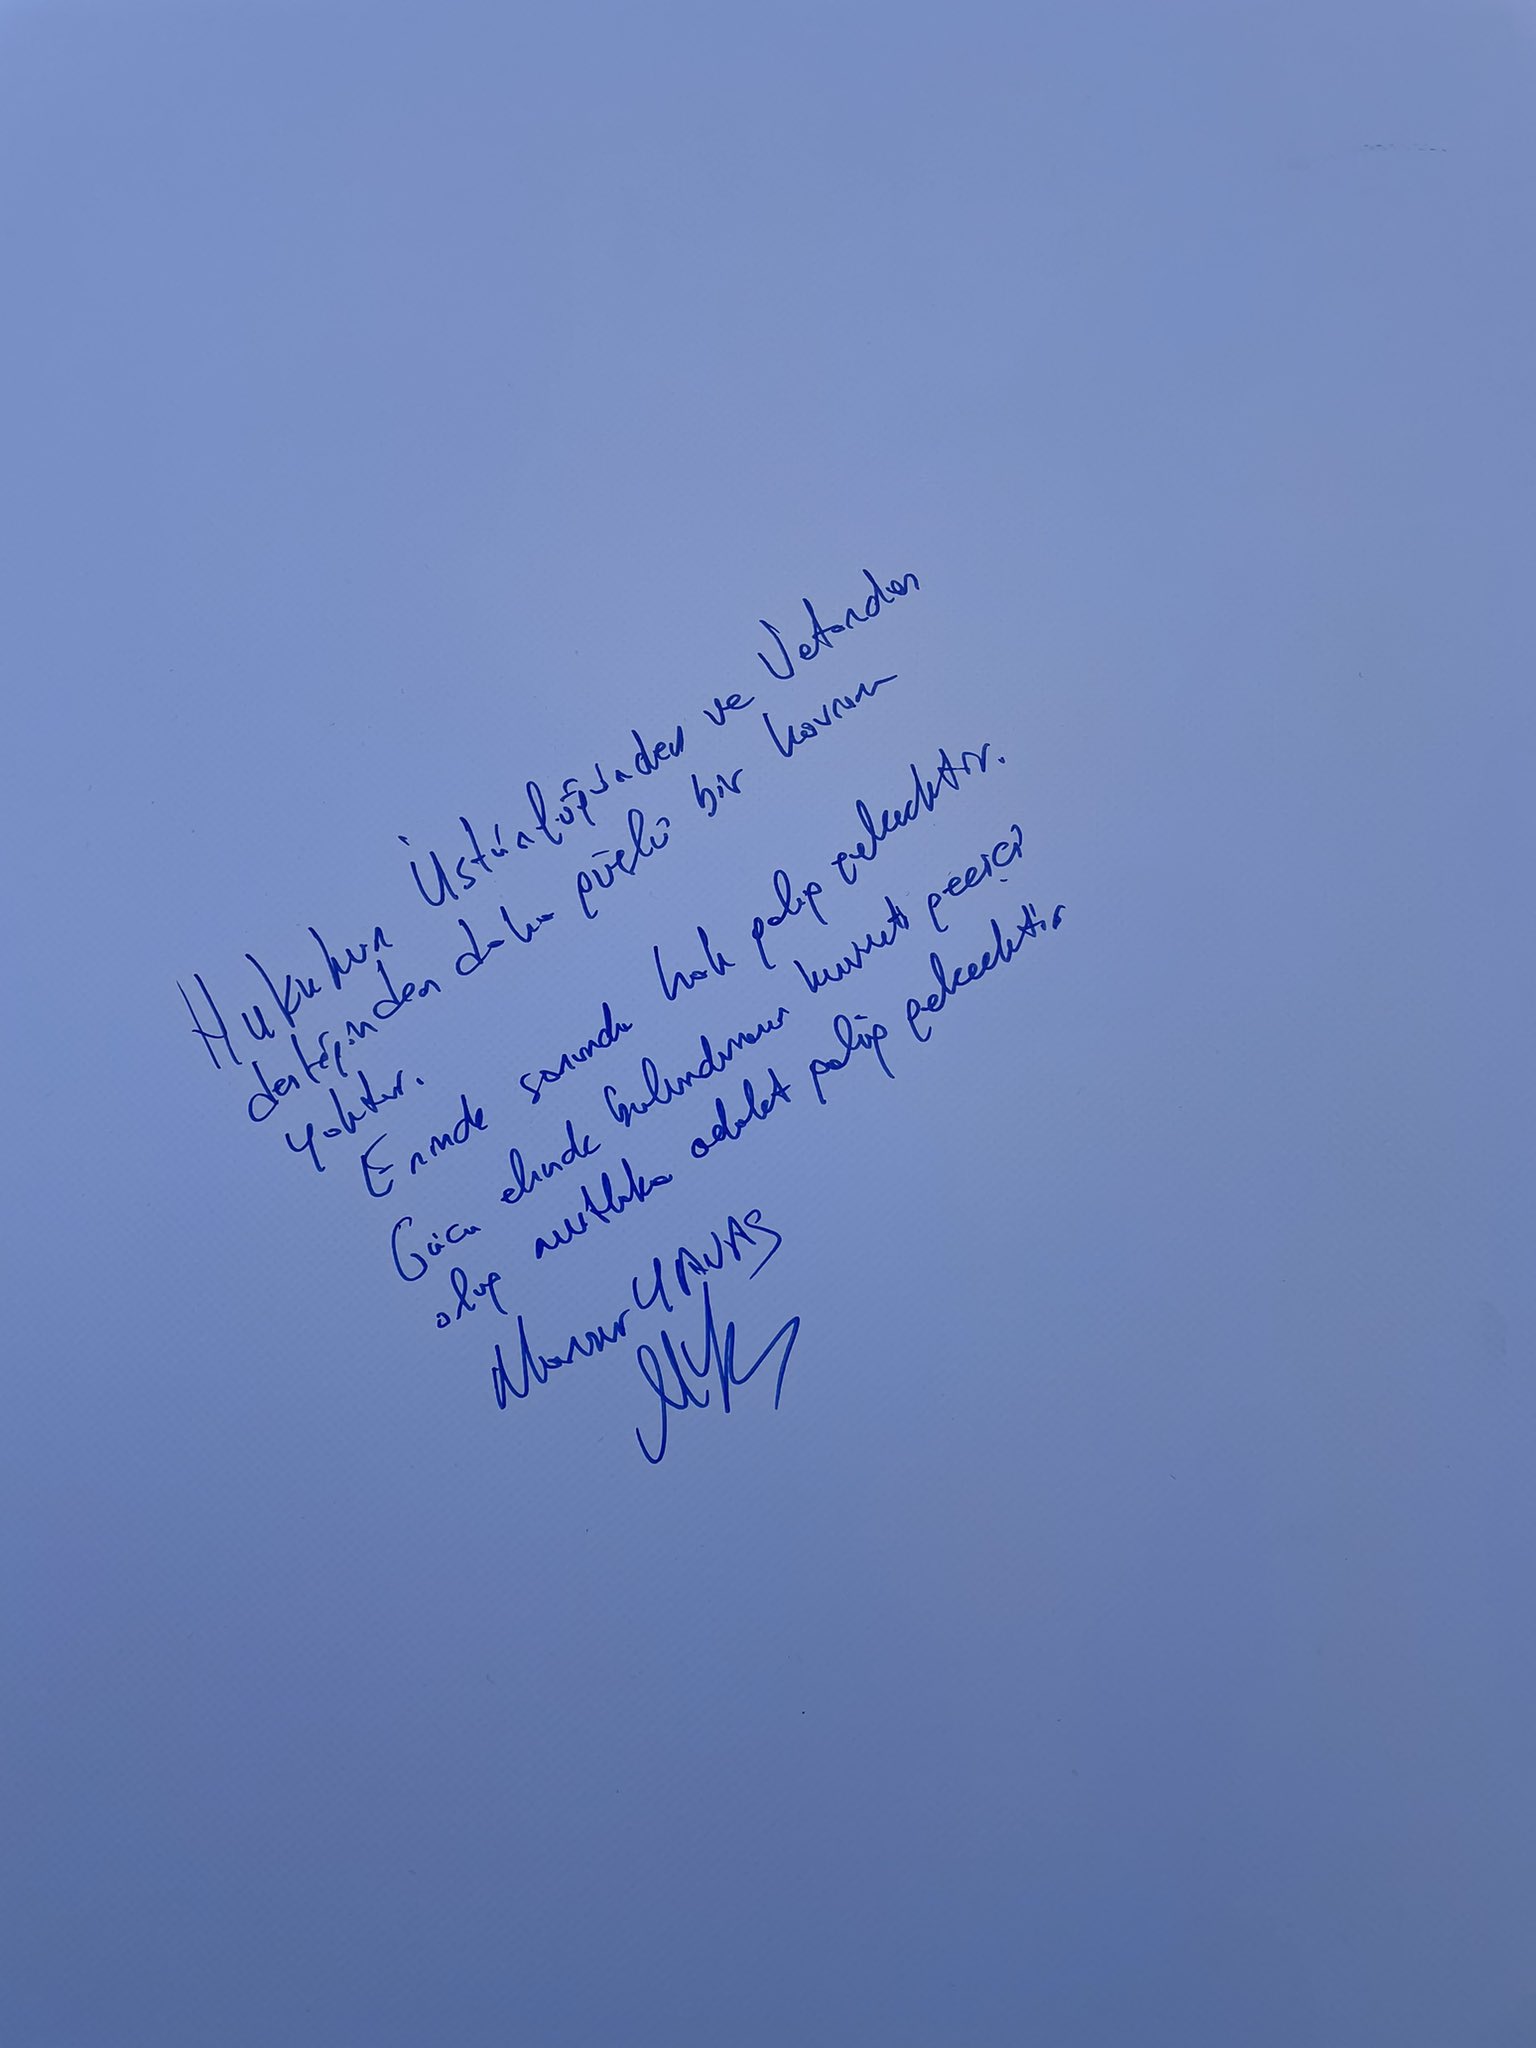 Hukukun Üstünlüğünden ve Vatandaş
desteğinden daha güçlü bir kavram
yoktur.
Eninde sonunda hak galip gelecektir.
Gücü elinde bulunduranın kuvveti geçici
olup mutlaka adalet galip gelecektir
Mansur YAVAŞ